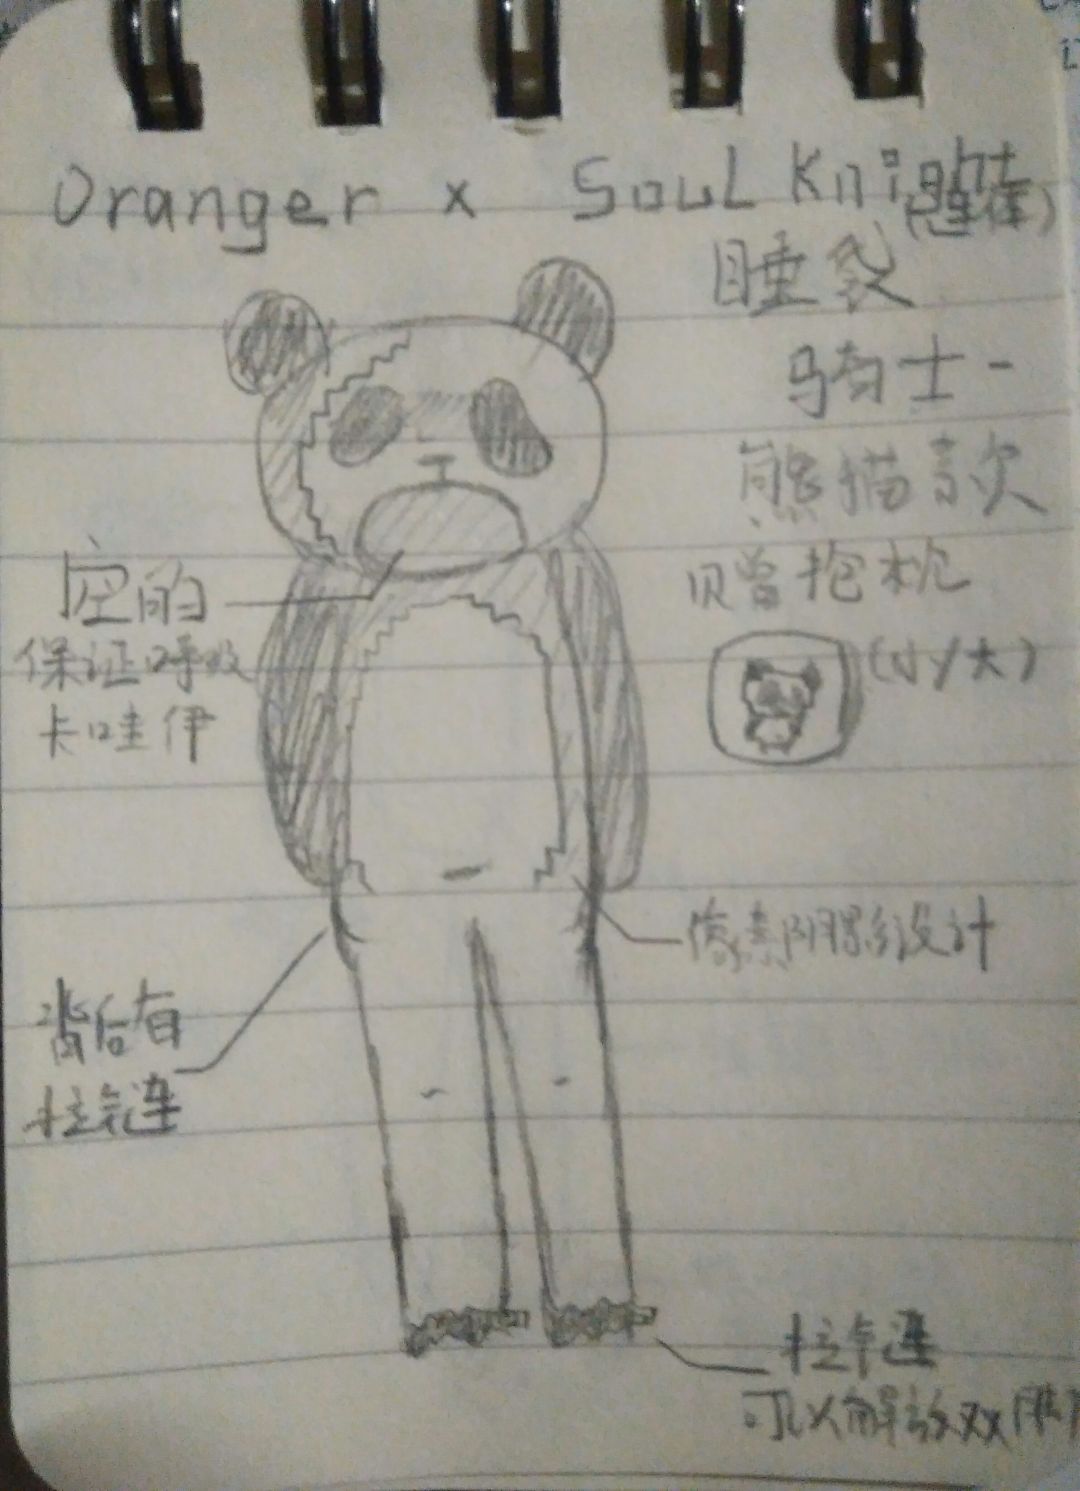 Oranger x Soul Kni
(连体)
睡袋
骑士一
熊猫款
赠抱枕
(小/大)
空的
保证呼吸
卡哇伊
像素阴影设计
背后有
拉链
拉链
可以解放双脚